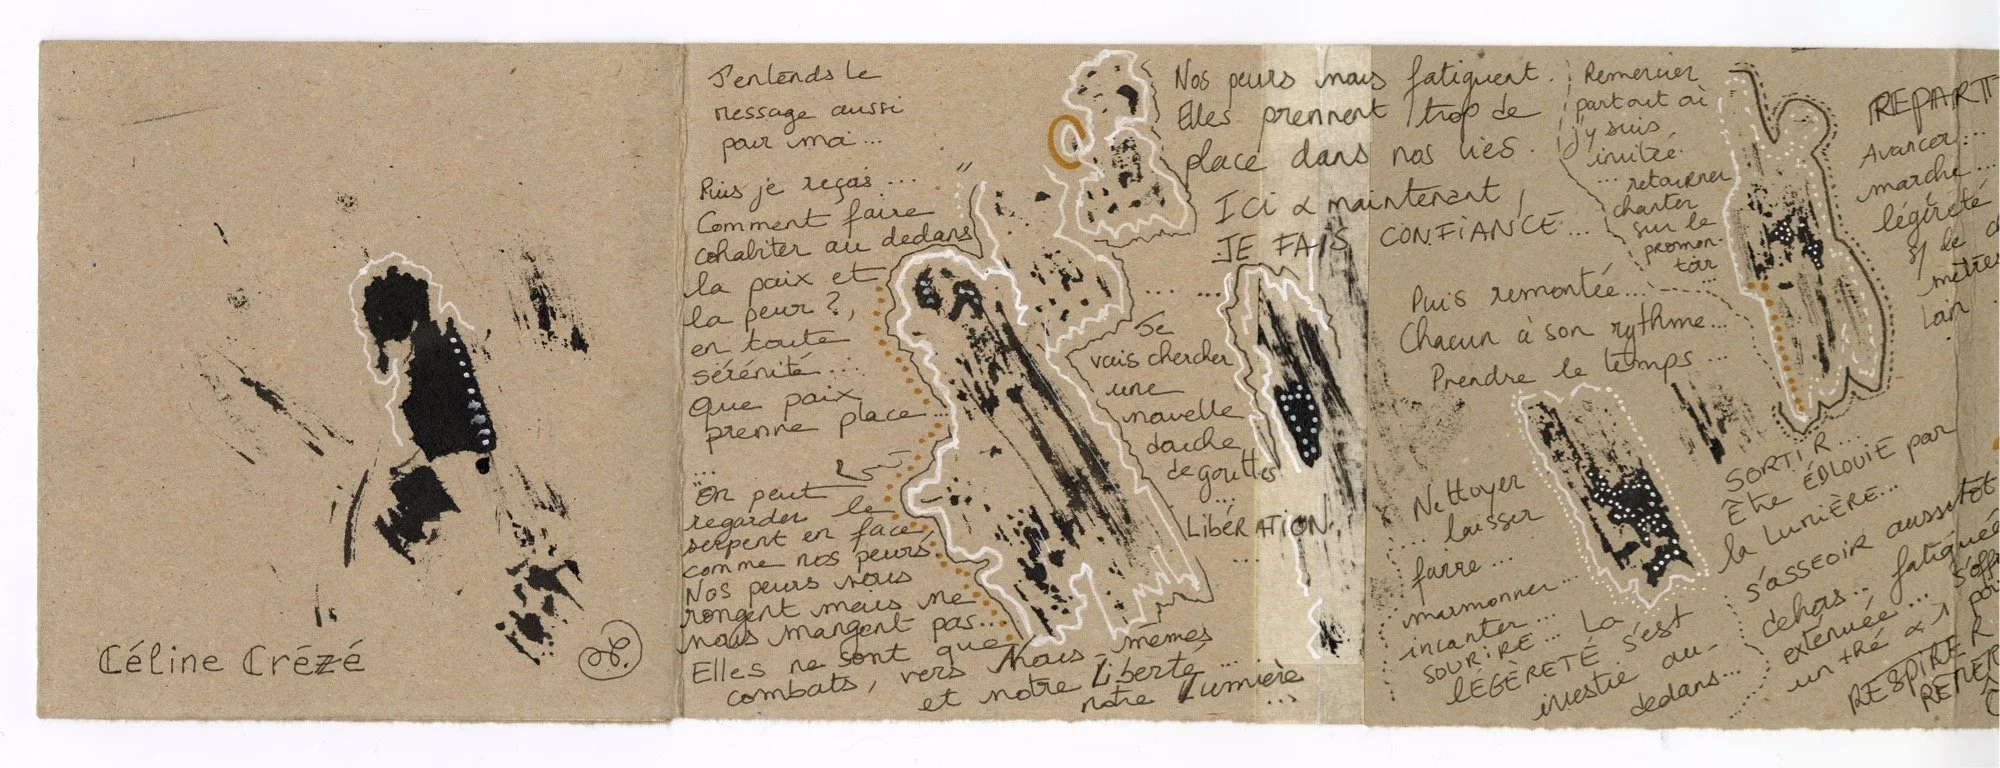 Céline Crézé
J'entends le
message aussi
pour moi...
Puis je reçois...
Comment faire
cohabiter au dedans
la paix et
la peur ?,
en toute
sérénité...
Que paix
prenne place...
...
On peut
regarder le
serpent en face
comme nos peurs
Nos peurs nous
rongent mais ne
nous mangent pas...
Elles ne sont que
combats, vers Nous-mêmes
et notre Liberté...
notre Lumière
...
Nos peurs nous fatiguent.
Elles prennent trop de
place dans nos vies.
Ici & maintenant,
JE FAIS CONFIANCE...
... ...
Je
vais chercher
une
nouvelle
douche
de gouttes
...
LibÉRATION.
...
Remercier
partout où
j'y suis
invitée.
... retourner
chanter
sur le
promon-
toir
Puis remontée...
Chacun à son rythme...
Prendre le temps...
Nettoyer
... laisser
faire...
marmonner...
incanter...
SOURIRE... La
LÉGÈRETÉ s'est
investie au-
dedans...
REPARTI
Avancer...
marche...
légèreté
de
mètres
loin
SORTIR...
Être ÉBLOUIE par
la LUMIÈRE...
s'ASSEOIR aussitôt
dehors... fatiguée
exténuée...
un thé & 1
RESPIRER